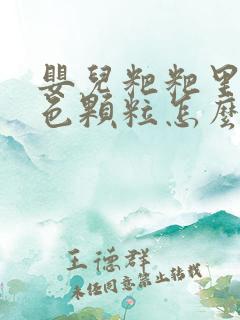 嬰兒粑粑里
色顆粒怎麼
王德群
未经同意禁止转载